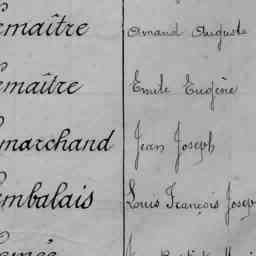 emaître Amand Auguste
emaître Emile Eugène
marchand Jean Joseph
embalais Louis François Josep